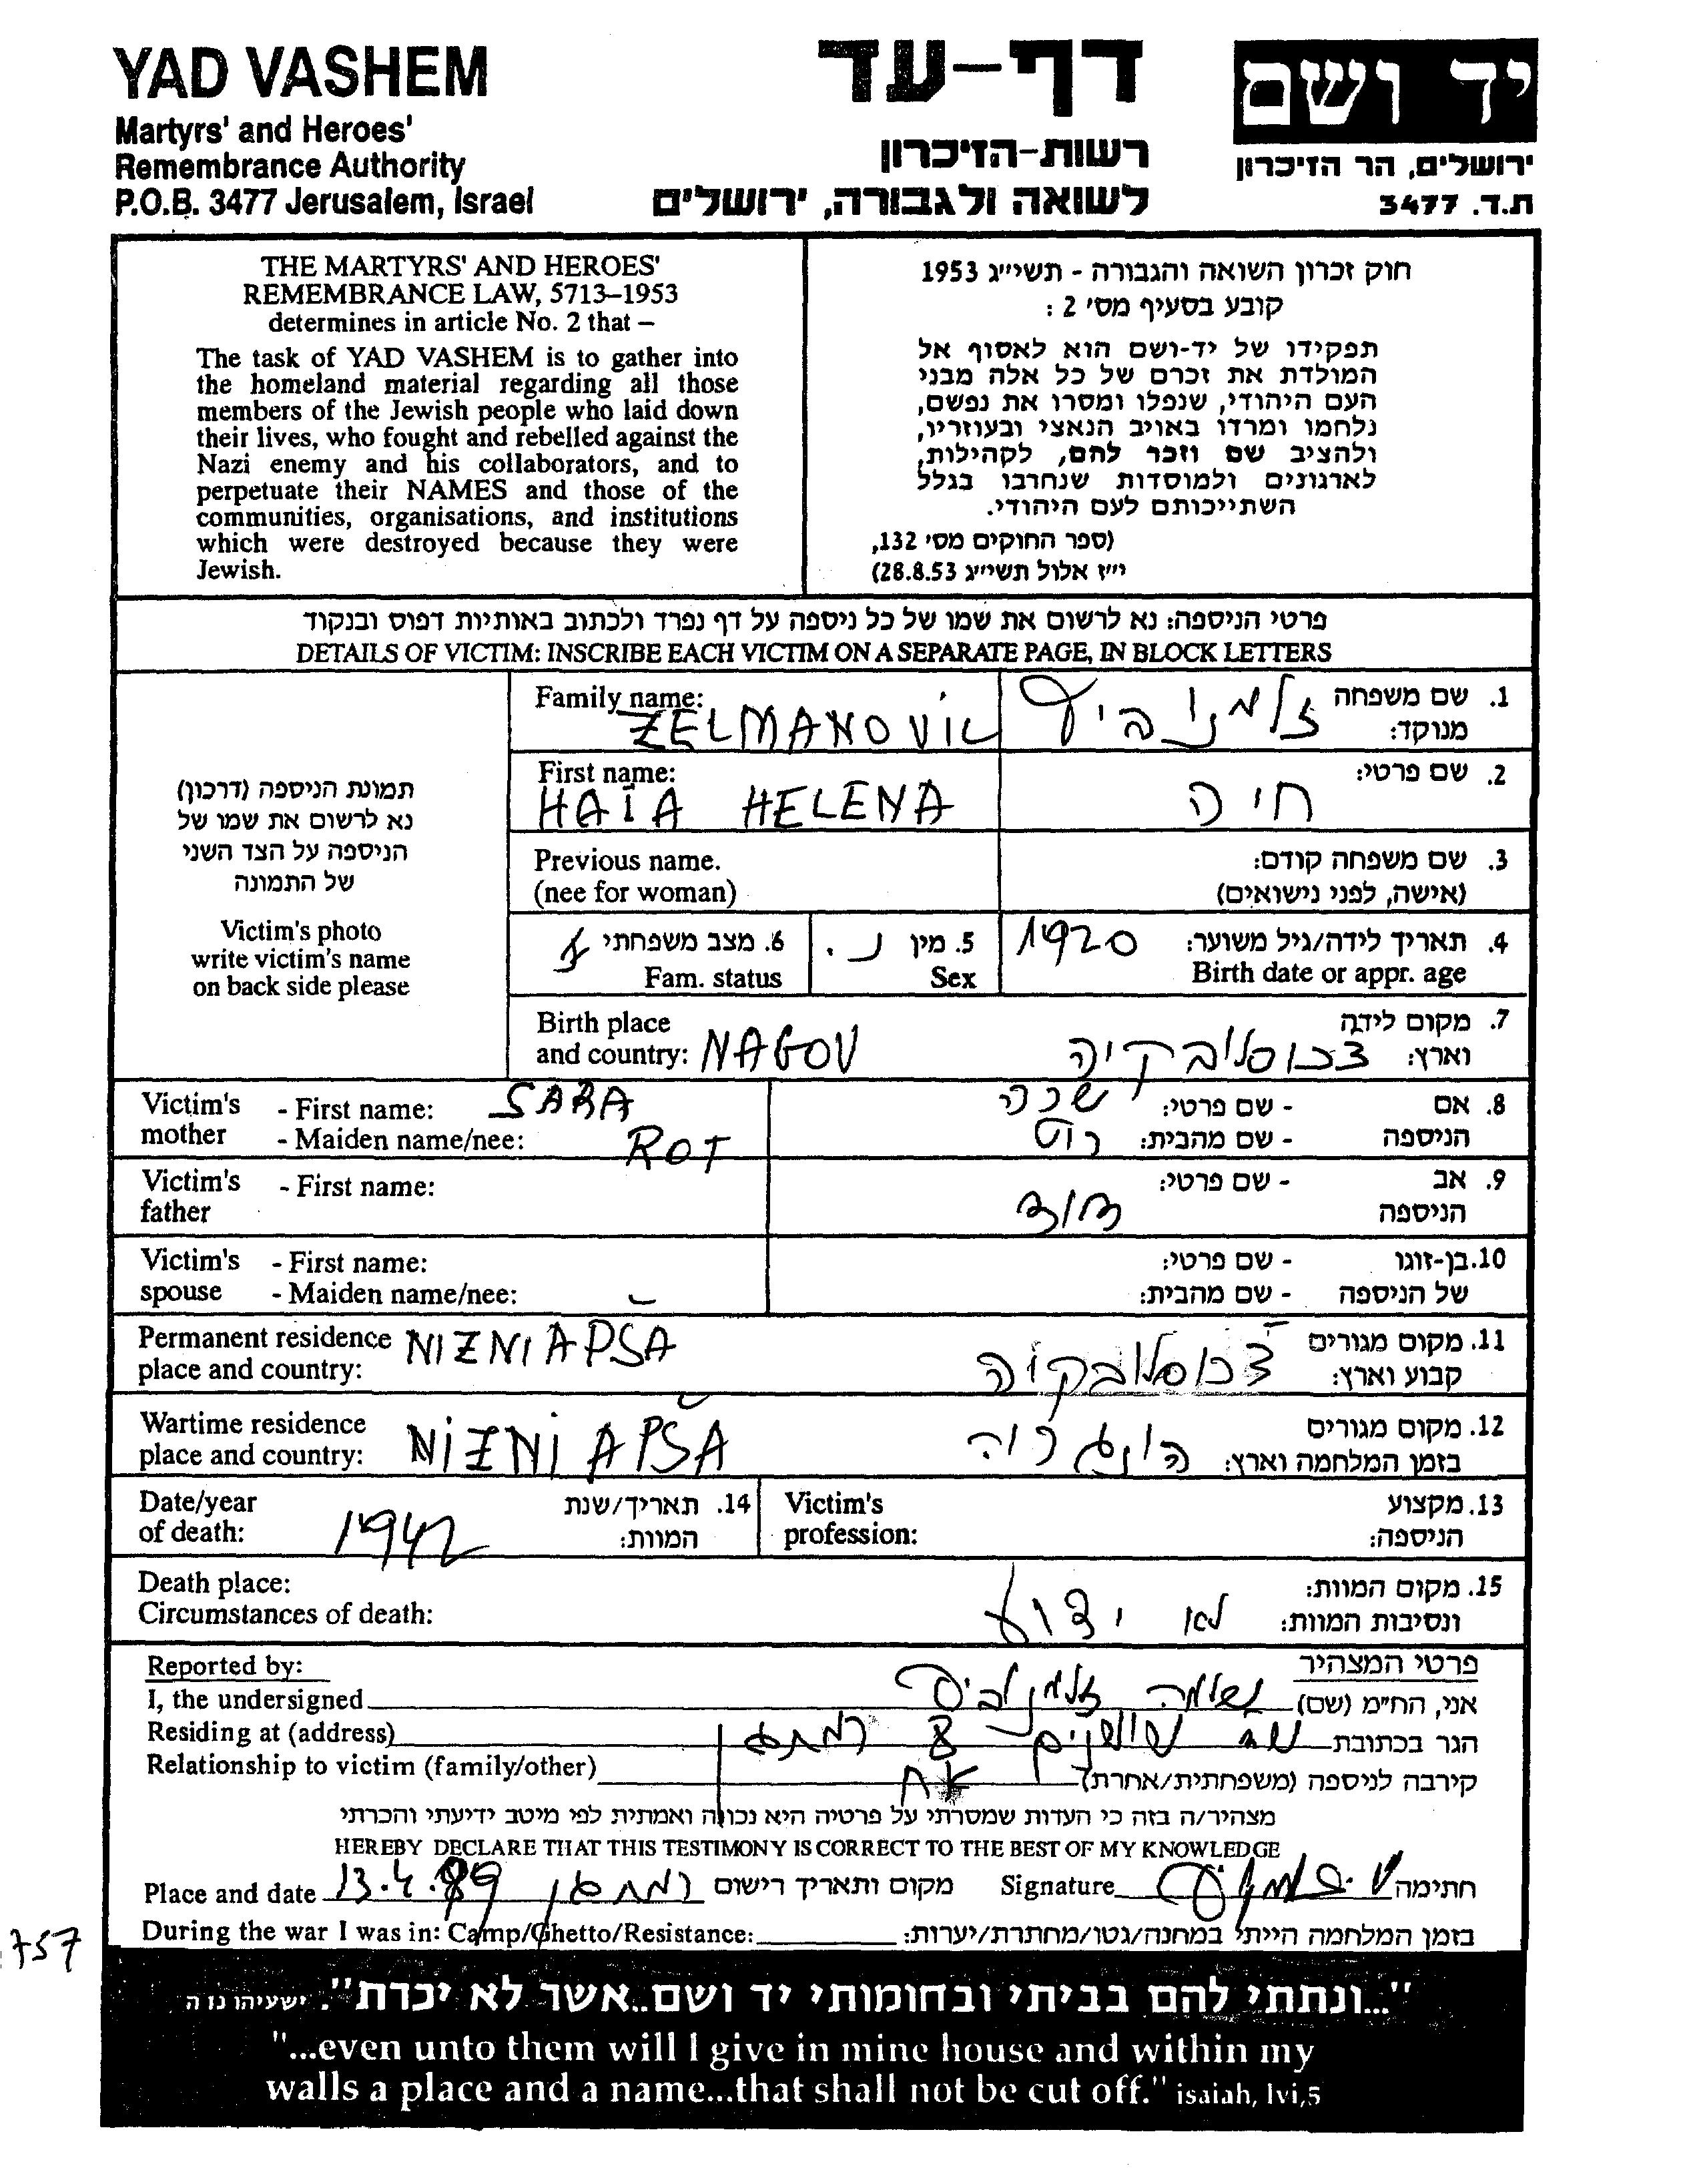 YAD VASHEM
Martyrs' and Heroes'
Remembrance Authority
P.O.B. 3477 Jerusalem, Israel
דף-עד
רשות-הזיכרון
לשואה ולגבורה, ירושלים
יד ושם
ירושלים, הר הזיכרון
ת.ד. 3477
THE MARTYRS' AND HEROES'
REMEMBRANCE LAW, 5713–1953
determines in article No. 2 that –
The task of YAD VASHEM is to gather into
the homeland material regarding all those
members of the Jewish people who laid down
their lives, who fought and rebelled against the
Nazi enemy and his collaborators, and to
perpetuate their NAMES and those of the
communities, organisations, and institutions
which were destroyed because they were
Jewish.
חוק זכרון השואה והגבורה - תשי״ג 1953
קובע בסעיף מס׳ 2 :
תפקידו של יד-ושם הוא לאסוף אל
המולדת את זכרם של כל אלה מבני
העם היהודי, שנפלו ומסרו את נפשם,
נלחמו ומרדו באויב הנאצי ובעוזריו,
ולהציב שם וזכר להם, לקהילות,
לארגונים ולמוסדות שנחרבו בגלל
השתייכותם לעם היהודי.
(ספר החוקים מס׳ 132,
י״ז אלול תשי״ג 28.8.53)
פרטי הניספה: נא לרשום את שמו של כל ניספה על דף נפרד ולכתוב באותיות דפוס ובנקוד
DETAILS OF VICTIM: INSCRIBE EACH VICTIM ON A SEPARATE PAGE, IN BLOCK LETTERS
תמונת הניספה (דרכון)
נא לרשום את שמו של
הניספה על הצד השני
של התמונה
Victim's photo
write victim's name
on back side please
Family name: ZELMANOVIC
1. שם משפחה מנוקד: זלמנוביץ
First name: HAIA HELENA
2. שם פרטי: חיה
Previous name.
(nee for woman)
3. שם משפחה קודם:
(אישה, לפני נישואים)
4. תאריך לידה/גיל משוער: 1920
Birth date or appr. age
5. מין נ.
Sex
6. מצב משפחתי
Fam. status
Birth place
and country: NAGOV
7. מקום לידה
וארץ: צכוסלובקיה
Victim's mother - First name: SARA
- Maiden name/nee: ROT
8. אם הניספה - שם פרטי: שרה
- שם מהבית: רוט
Victim's father - First name:
9. אב הניספה - שם פרטי: דוד
Victim's spouse - First name:
- Maiden name/nee:
10. בן-זוגו של הניספה - שם פרטי:
- שם מהבית:
Permanent residence
place and country: NIZNI APSA
11. מקום מגורים
קבוע וארץ: צכוסלובקיה
Wartime residence
place and country: NIZNI APŠA
12. מקום מגורים
בזמן המלחמה וארץ: הונגריה
Date/year
of death: 1942
14. תאריך/שנת
המוות:
Victim's
profession:
13. מקצוע
הניספה:
Death place:
Circumstances of death:
15. מקום המוות:
ונסיבות המוות: לא ידוע
Reported by:
פרטי המצהיר
I, the undersigned
אני, הח״מ (שם) שלמה זלמנוביץ
Residing at (address)
הגר בכתובת שושנים 8 רמת גן
Relationship to victim (family/other)
קירבה לניספה (משפחתית/אחרת) אח
מצהיר/ה בזה כי העדות שמסרתי על פרטיה היא נכונה ואמתית לפי מיטב ידיעתי והכרתי
HEREBY DECLARE THAT THIS TESTIMONY IS CORRECT TO THE BEST OF MY KNOWLEDGE
Place and date 13.4.89 רמת גן מקום ותאריך רישום
Signature חתימה
During the war I was in: Camp/Ghetto/Resistance:
בזמן המלחמה הייתי במחנה/גטו/מחתרת/יערות:
757
"...ונתתי להם בביתי ובחומותי יד ושם..אשר לא יכרת". ישעיהו נו ה
"...even unto them will I give in mine house and within my
walls a place and a name...that shall not be cut off." isaiah, lvi,5